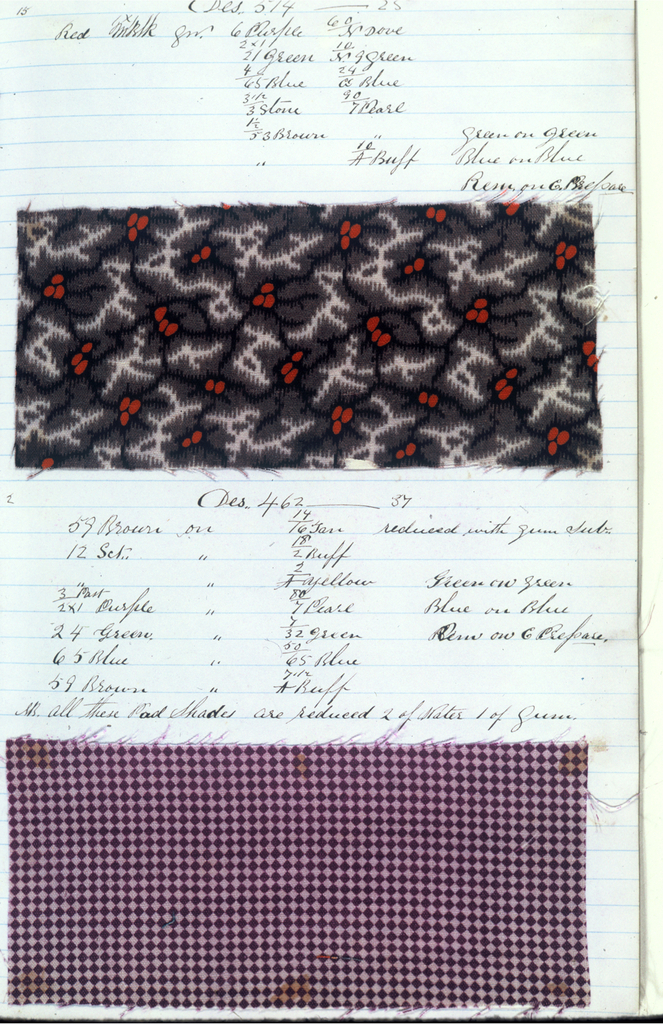 15 Des. 514 — 25
Red Blk gr. 6 Purple 60/N Dove
2x1/21 Green 10/N 9 green
4/65 Blue 24/65 Blue
3 1/2/3 Stone 90/7 Pearl
1 1/2/53 Brown "
Green on Green
" 10/A Buff Blue on Blue
Rem on C. Prepare
2 Des. 462 — 37
59 Brown on 14/16 Tan reduced with gum Sub.
12 Sct. " 18/2 Buff
" " 2/A Yellow Green on Green
3 Part/2x1 Purple " 80/7 Pearl Blue on Blue
24 Green. " 7/32 green Rem on C Prepare.
65 Blue " 50/65 Blue
59 Brown " 7 1/2/A Buff
NB. all these Pad Shades are reduced 2 of Water 1 of Gum.